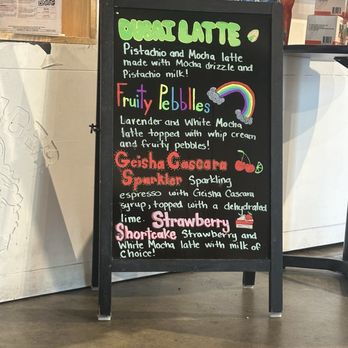 DUBAI LATTE
Pistachio and Mocha latte
made with Mocha drizzle and
Pistachio milk!
Fruity Pebblles
Lavender and White Mocha
latte topped with whip cream
and fruity pebbles!
Geisha Cascara
Sparkler Sparkling
espresso with Geisha Cascara
syrup, topped with a dehydrated
lime. Strawberry
Shortcake Strawberry and
White Mocha latte with milk of
choice!